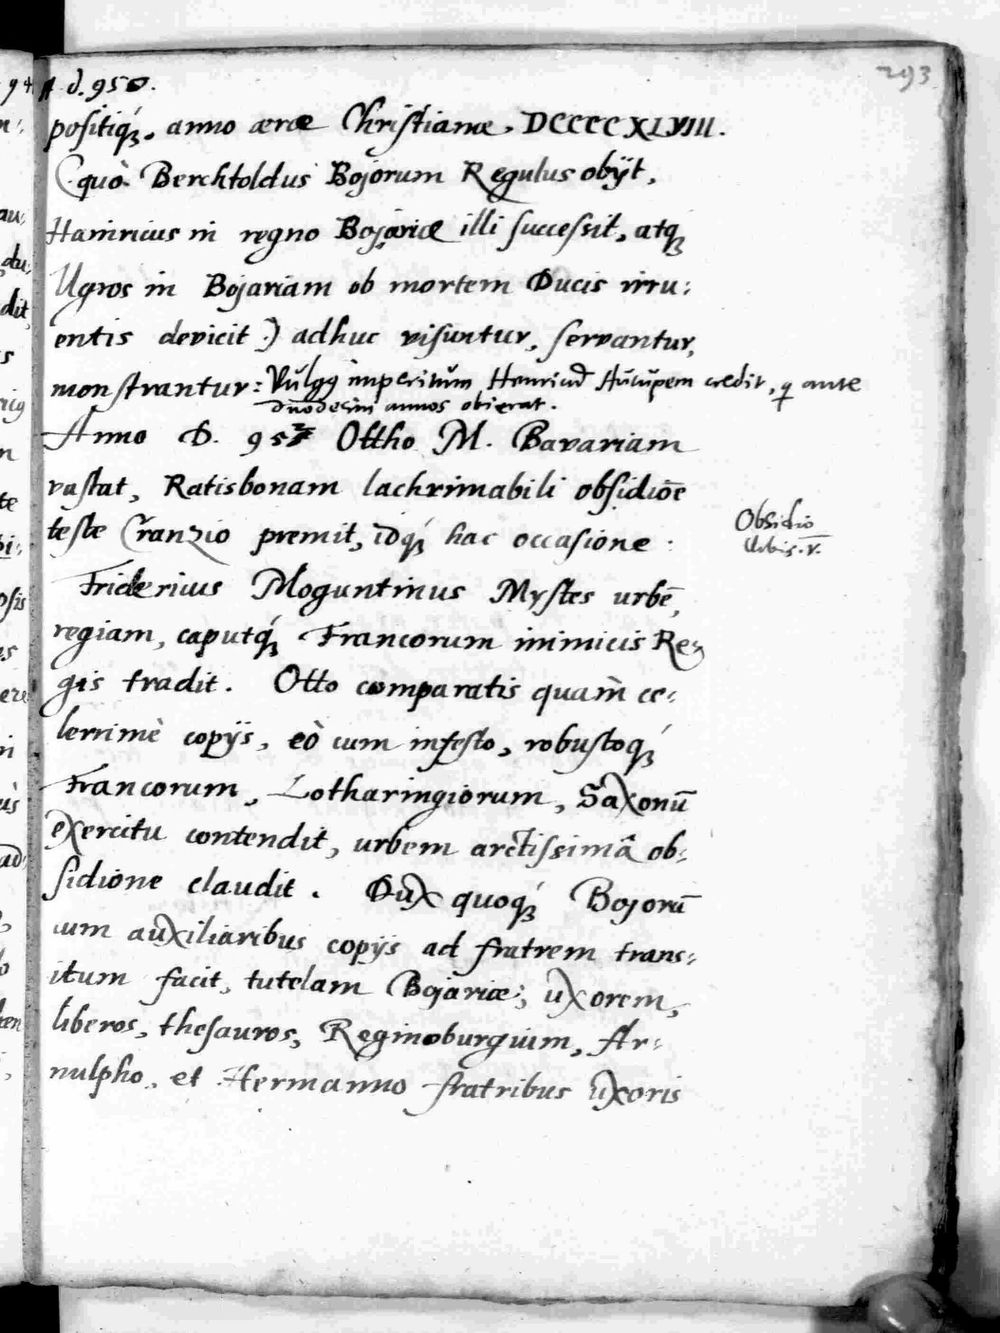 A. d. 950.
293
positiq́; anno æræ Christianæ, DCCCCXLVIII.
(quo Berchtoldus Bojorum Regulus obÿt,
Hainricus in regno Bojariæ illi successit, atq;
Ugros in Bojariam ob mortem Ducis irru:
entis devicit) adhuc visuntur, servantur,
monstrantur: Vulgus imperitum Henricum Aucupem credit, q ante
duodecim annos obierat.
Anno D. 95 Ottho M. Bavariam
vastat, Ratisbonam lachrimabili obsidiōe
teste Cranzio premit, idq́; hac occasione:
Obsidio
Urbis. V.
Fridericus Moguntinus Mystes urbē,
regiam, caputq́; Francorum inimicis Re:
gis tradit. Otto comparatis quam̀ ce:
lerrimè copÿs, eò cum infesto, robustoq́;
Francorum, Lotharingiorum, Saxonū
exercitu contendit, urbem arctissimâ ob:
sidione claudit. Dux quoq́; Bojorū
cum auxiliaribus copÿs ad fratrem trans:
itum facit, tutelam Bojariæ, uxorem,
liberos, thesauros, Reginoburgium, Ar:
nulpho, et Hermanno fratribus uxoris